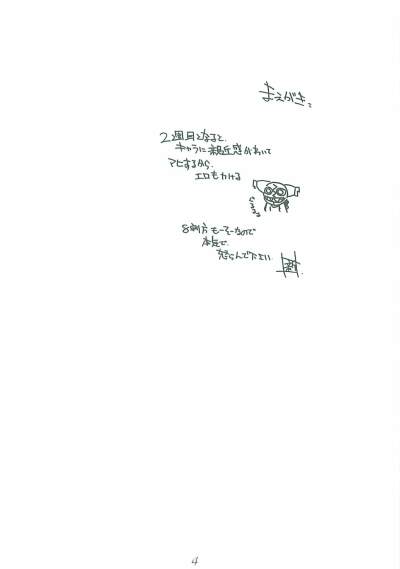 まえがき。
2週目となると、
キャラに親近感がわいて
アヒするから、
エロもかける
8割方もーそーなので
本気で
怒らんでたもい
4